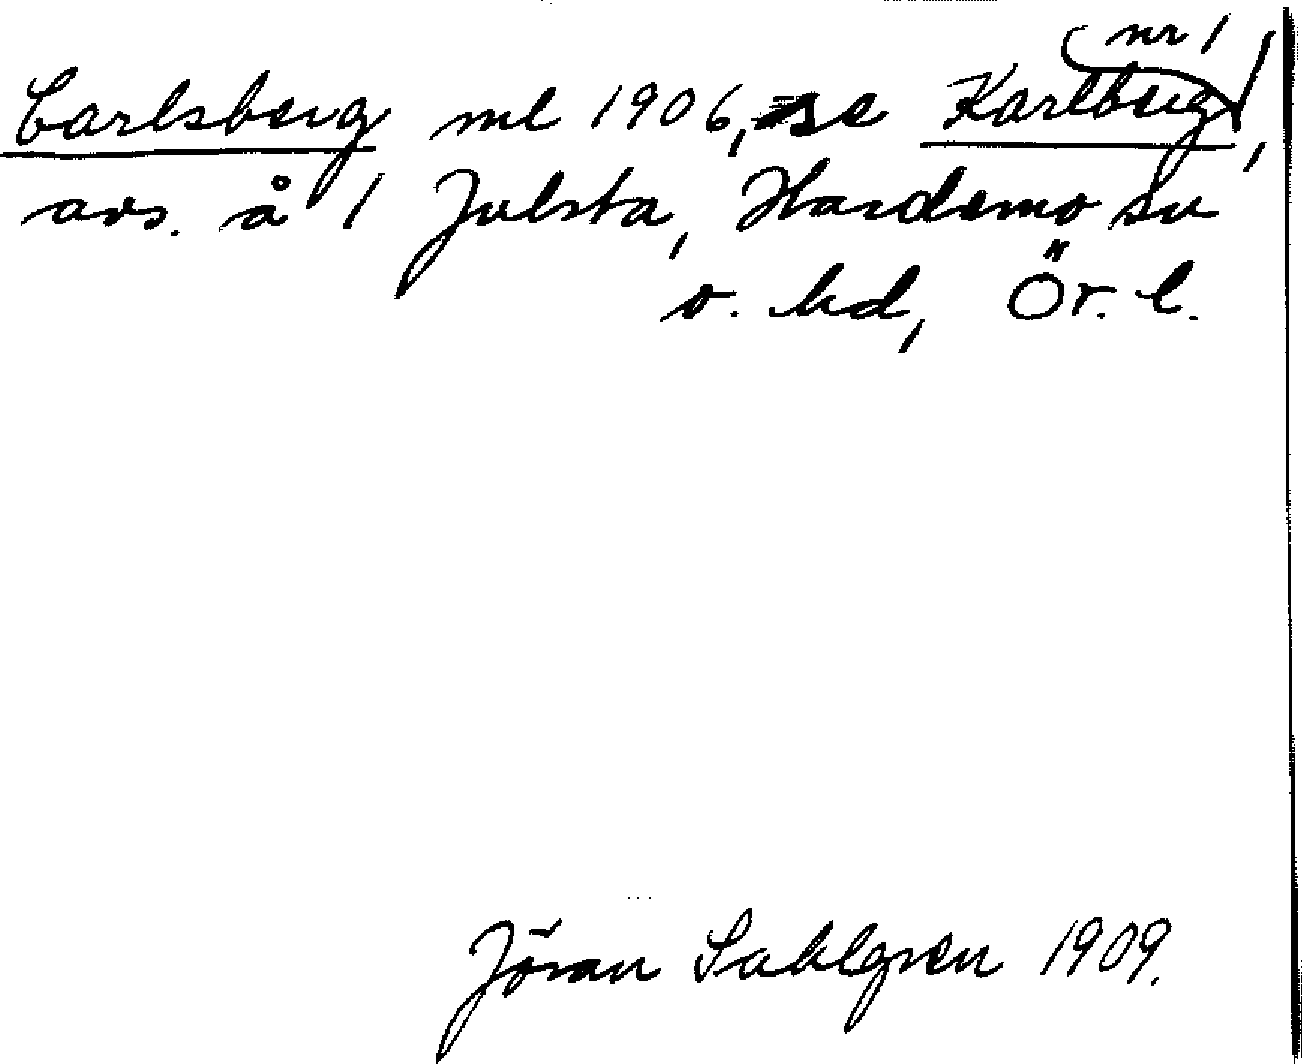 Carlsberg ml 1906, se Karlberg nr 1,
avs. å 1 Julsta, Hardemo sn
o. hd, Ör. l.
Jöran Sahlgren 1909.